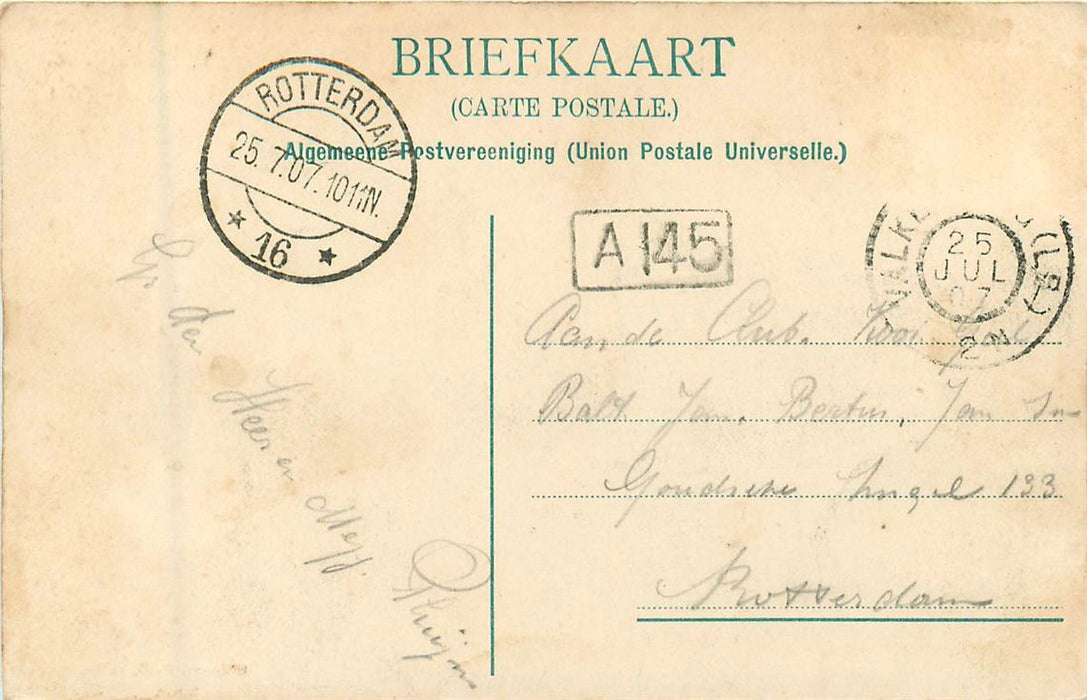 BRIEFKAART
(CARTE POSTALE.)
Algemeene Postvereeniging (Union Postale Universelle.)
ROTTERDAM
25.7.07.1011N.
16
A 145
VALK (LB.)
25
JUL
07
2N
Aan de Club.
Balt Jan. Bertus, Jan
Goudsche Singel 133
Rotterdam
Gr. de Heer en Mej.